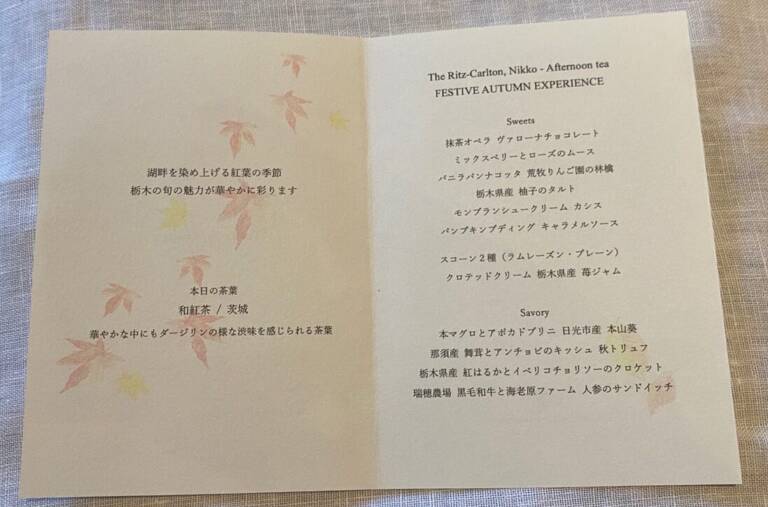 湖畔を染め上げる紅葉の季節
栃木の旬の魅力が華やかに彩ります
本日の茶葉
和紅茶 / 茨城
華やかな中にもダージリンの様な渋味を感じられる茶葉
The Ritz-Carlton, Nikko - Afternoon tea
FESTIVE AUTUMN EXPERIENCE
Sweets
抹茶オペラ ヴァローナチョコレート
ミックスベリーとローズのムース
バニラパンナコッタ 荒牧りんご園の林檎
栃木県産 柚子のタルト
モンブランシュークリーム カシス
パンプキンプディング キャラメルソース
スコーン2種（ラムレーズン・プレーン）
クロテッドクリーム 栃木県産 苺ジャム
Savory
本マグロとアボカドブリニ 日光市産 本山葵
那須産 舞茸とアンチョビのキッシュ 秋トリュフ
栃木県産 紅はるかとイベリコチョリソーのクロケット
瑞穂農場 黒毛和牛と海老原ファーム 人参のサンドイッチ